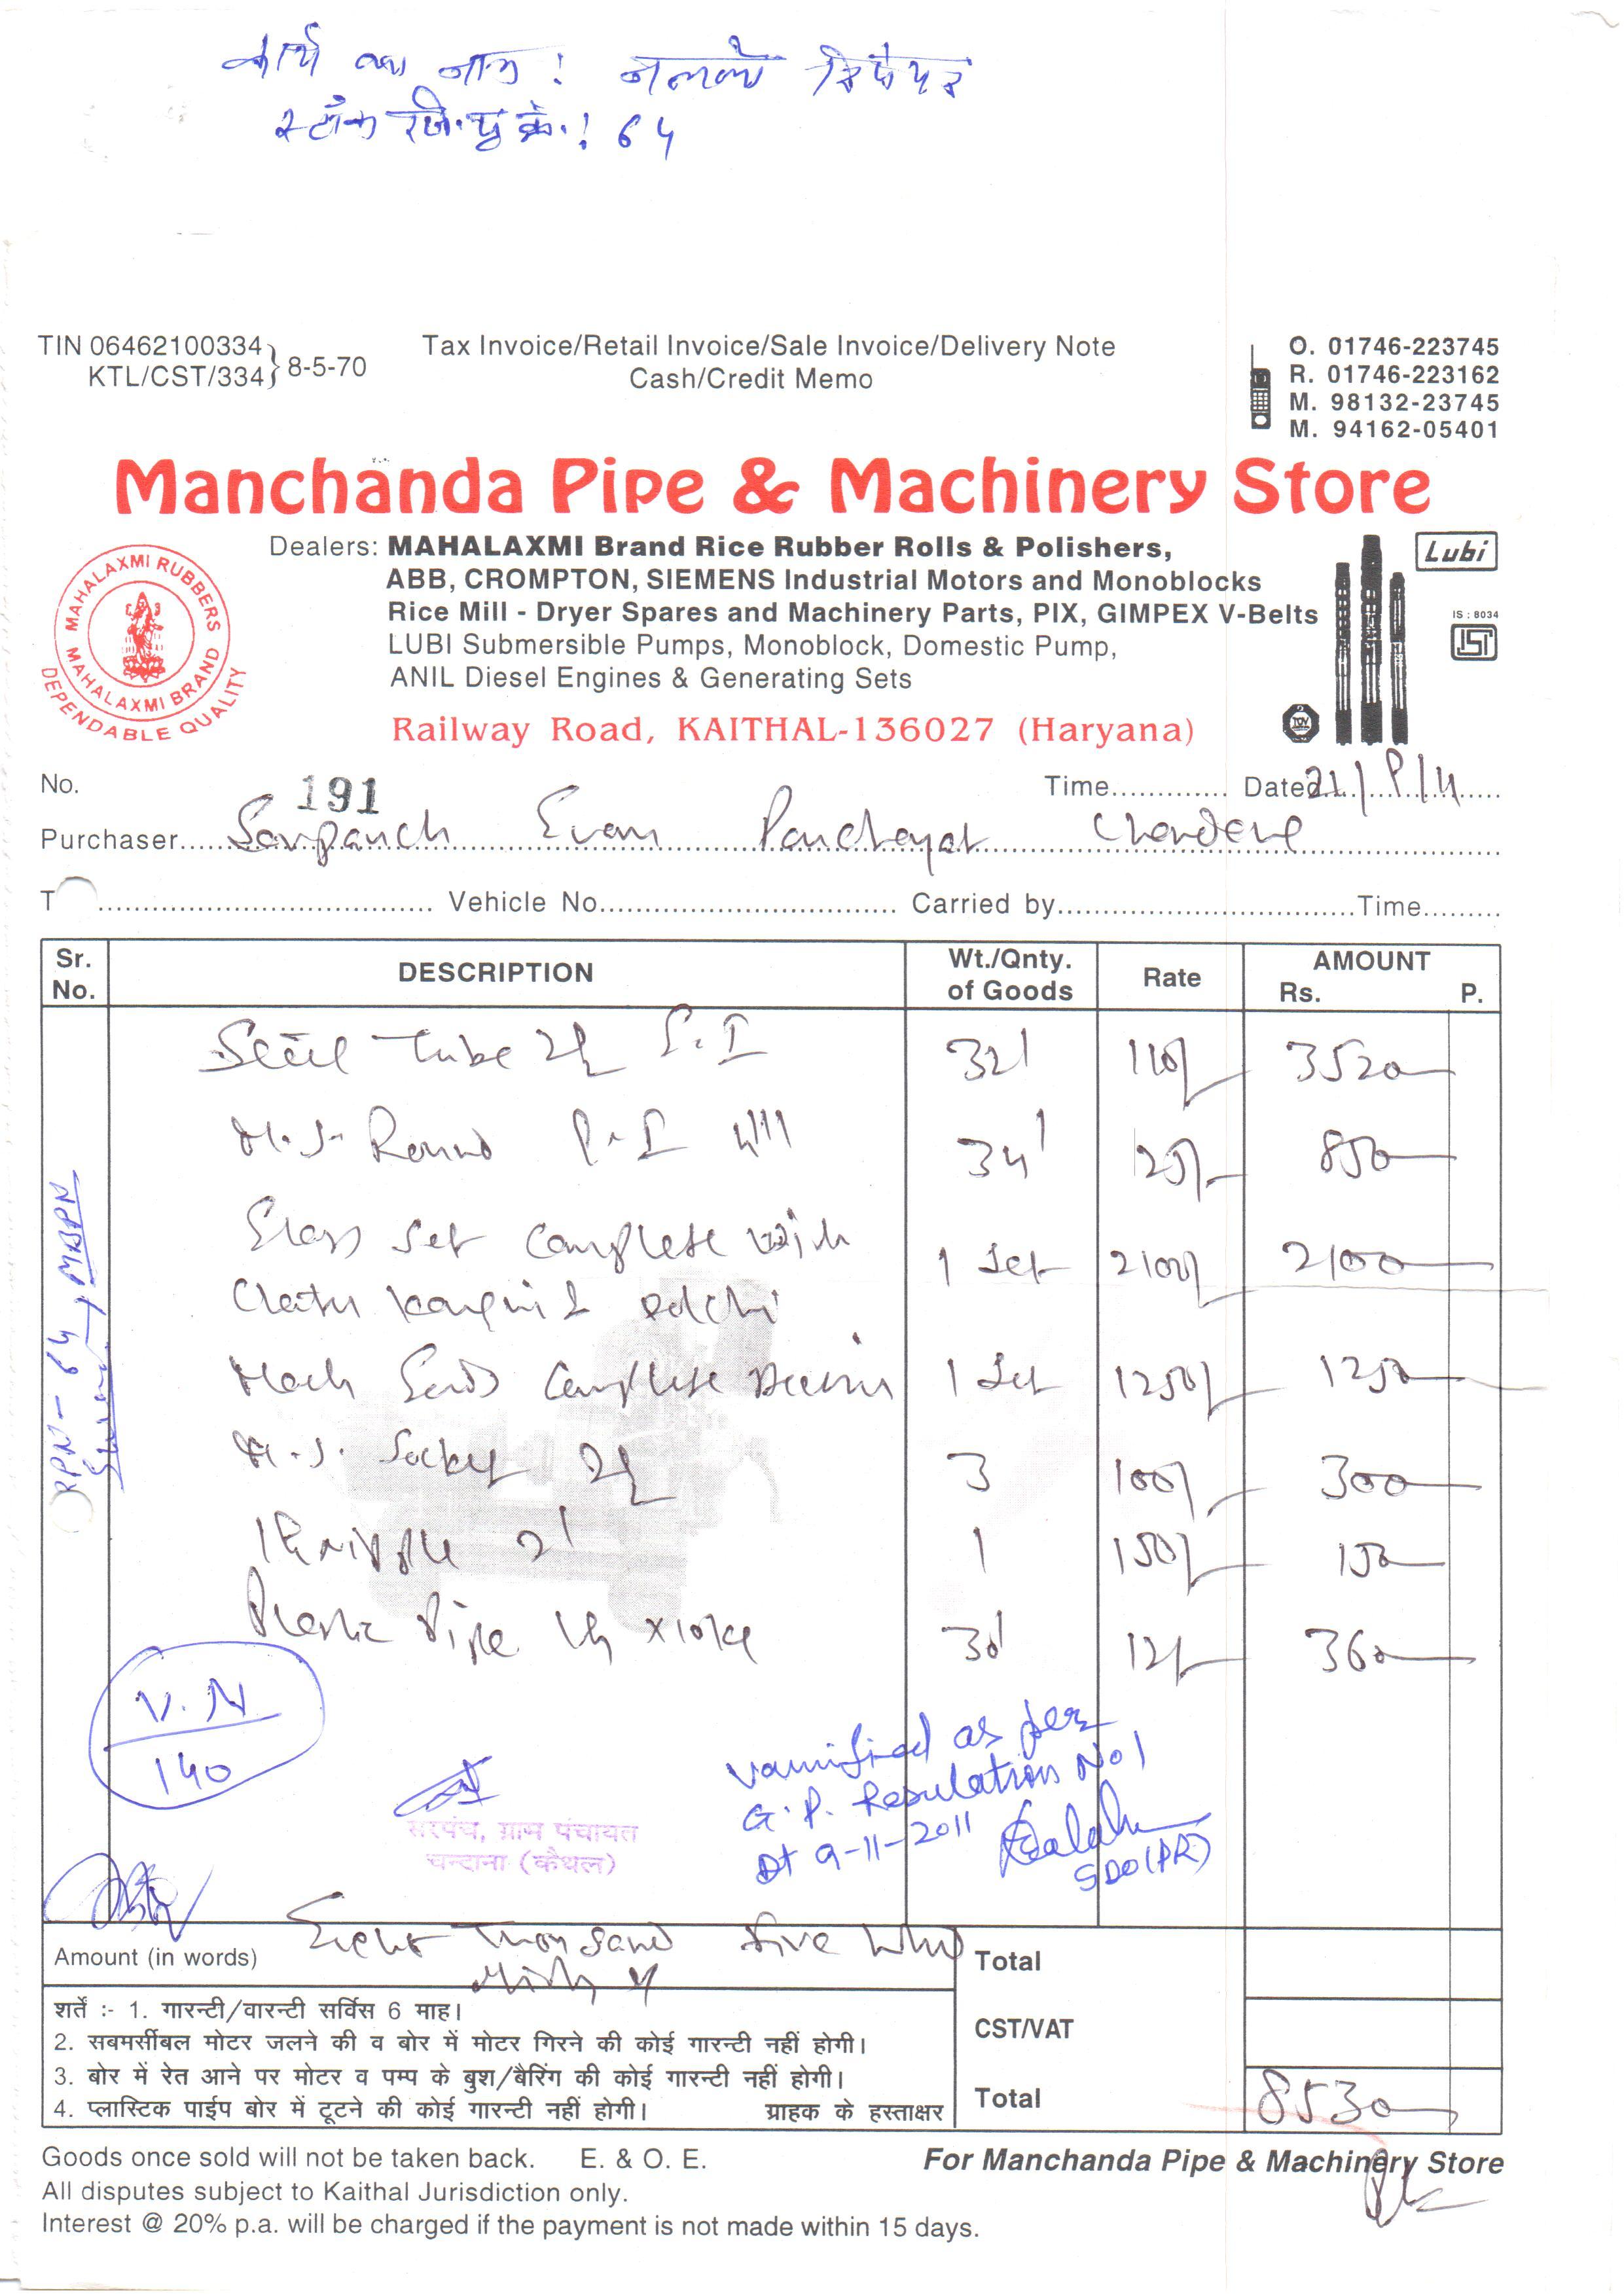 कार्य का नाम : नलको रिपेयर
स्टॉक रजि. पृ क्रं. : 64
TIN 06462100334
KTL/CST/334
8-5-70
Tax Invoice/Retail Invoice/Sale Invoice/Delivery Note
Cash/Credit Memo
O. 01746-223745
R. 01746-223162
M. 98132-23745
M. 94162-05401
Manchanda Pipe & Machinery Store
MAHALAXMI RUBBERS
MAHALAXMI BRAND
DEPENDABLE QUALITY
Dealers: MAHALAXMI Brand Rice Rubber Rolls & Polishers,
ABB, CROMPTON, SIEMENS Industrial Motors and Monoblocks
Rice Mill - Dryer Spares and Machinery Parts, PIX, GIMPEX V-Belts
LUBI Submersible Pumps, Monoblock, Domestic Pump,
ANIL Diesel Engines & Generating Sets
Lubi
IS : 8034
Railway Road, KAITHAL-136027 (Haryana)
No. 191 Time............. Dated 21/8/11
Purchaser Sarpanch Panchayat
T Vehicle No. Carried by Time
Sr. No. DESCRIPTION Wt./Qnty. of Goods Rate AMOUNT Rs. P.
Steel Tube 2½ 32' 110/- 3520
M.S. Round 34' 25/- 850
Set Complete with 1 Set 2100/- 2100
Complete 1 Set 1250/- 1250
M.S. Socket 2½ 3 100/- 300
Nipple 2' 1 150/- 150
Plastic Pipe 30' 12/- 360
RPN - 64, MBPN
V.N
140
सरपंच, ग्राम पंचायत
चन्दाना (कैथल)
varrified as per
G.P. Resulation No 1
Dt 9-11-2011
SDO(PR)
Amount (in words) Eight Thousand Five
Total
शर्ते :- 1. गारन्टी/वारन्टी सर्विस 6 माह।
2. सबमर्सीबल मोटर जलने की व बोर में मोटर गिरने की कोई गारन्टी नहीं होगी।
CST/VAT
3. बोर में रेत आने पर मोटर व पम्प के बुश/बैरिंग की कोई गारन्टी नहीं होगी।
4. प्लास्टिक पाईप बोर में टूटने की कोई गारन्टी नहीं होगी। ग्राहक के हस्ताक्षर
Total 8530
Goods once sold will not be taken back. E. & O. E.
For Manchanda Pipe & Machinery Store
All disputes subject to Kaithal Jurisdiction only.
Interest @ 20% p.a. will be charged if the payment is not made within 15 days.